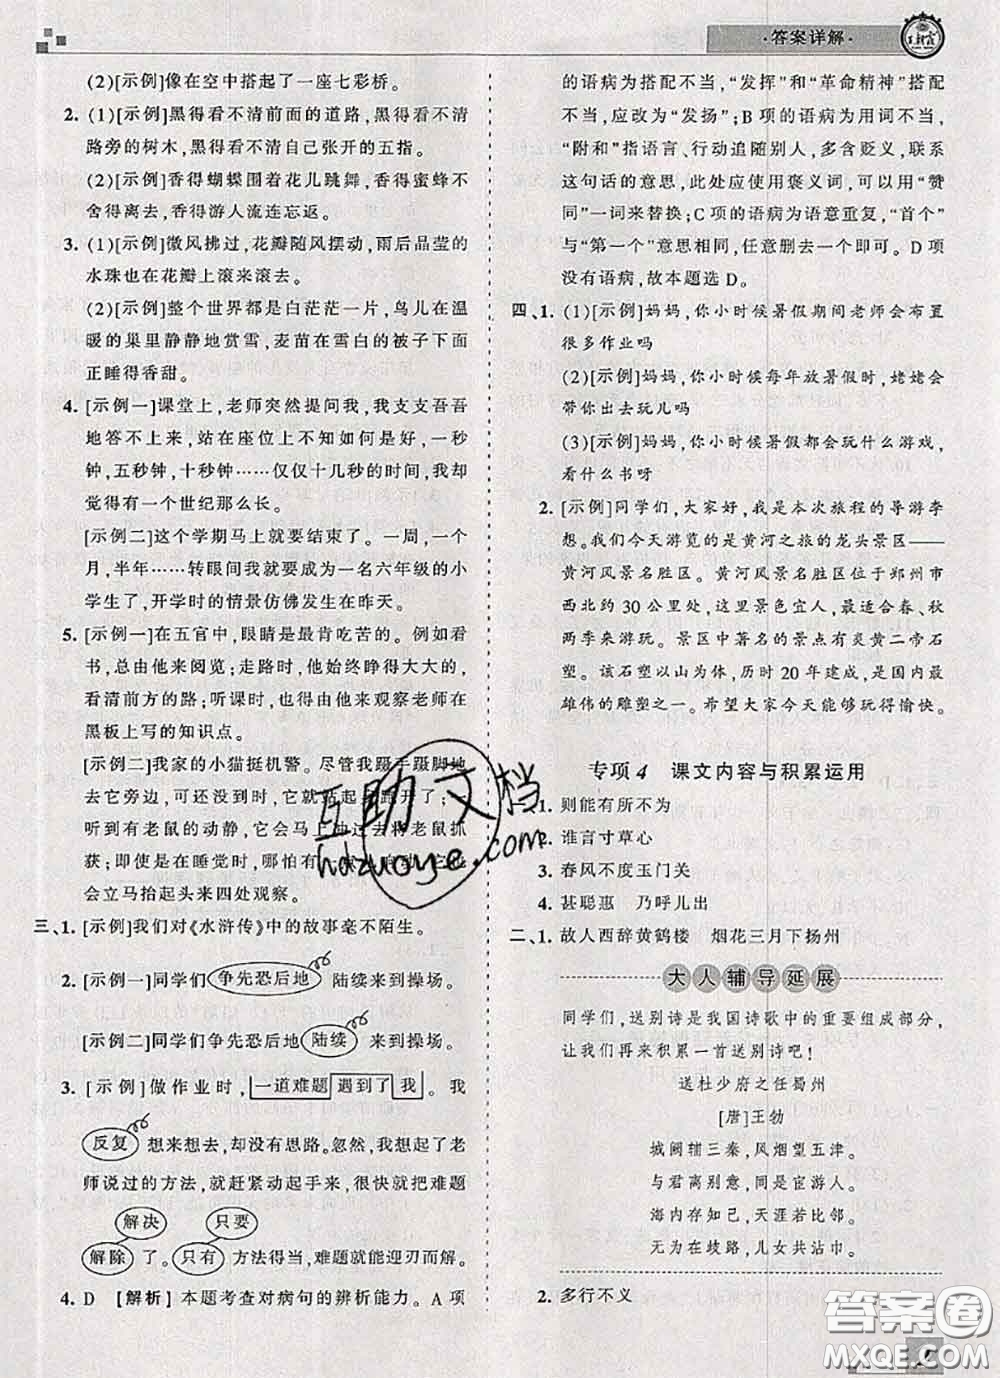 ·答案详解·
王朝霞
(2)[示例]像在空中搭起了一座七彩桥。
2. (1)[示例]黑得看不清前面的道路,黑得看不清
路旁的树木,黑得看不清自己张开的五指。
(2)[示例]香得蝴蝶围着花儿跳舞,香得蜜蜂不
舍得离去,香得游人流连忘返。
3. (1)[示例]微风拂过,花瓣随风摆动,雨后晶莹的
水珠也在花瓣上滚来滚去。
(2)[示例]整个世界都是白茫茫一片,鸟儿在温
暖的巢里静静地赏雪,麦苗在雪白的被子下面
正睡得香甜。
4. [示例一]课堂上,老师突然提问我,我支支吾吾
地答不上来,站在座位上不知如何是好,一秒
钟,五秒钟,十秒钟……仅仅十几秒的时间,我却
觉得有一个世纪那么长。
[示例二]这个学期马上就要结束了。一周,一个
月,半年……转眼间我就要成为一名六年级的小
学生了,开学时的情景仿佛发生在昨天。
5. [示例一]在五官中,眼睛是最肯吃苦的。例如看
书,总由他来阅览;走路时,他始终睁得大大的,
看清前方的路;听课时,也有由他来观察老师在
黑板上写的知识点。
[示例二]我家的小猫挺机警。尽管我蹑手蹑脚
地在它旁边走动,它就站起来跑开了;一
听到有老鼠的动静,它会马上冲过去将老鼠抓
获;即使是在睡觉时,哪怕有一点点启动,它也
会立马抬起头来四处观察。
三、1. [示例]我们对《水浒传》中的故事毫不陌生。
2. [示例一]同学们争先恐后地陆续来到操场。
[示例二]同学们争先恐后地陆续来到操场。
3. [示例]做作业时,一道难题遇到了我。我
反复想来想去,却没有思路。忽然,我想到了老
师说过的方法,就赶紧动起手来,很快就把难题
解决 只要
解除了。只有方法得当,难题就能迎刃而解。
4. D [解析]本题考查对病句的辨析能力。A 项
的语病为搭配不当,“发挥”和“革命精神”搭配
不当,应改为“发扬”;B 项的语病为用词不当,
“附和”指语言、行动追随别人,多含贬义,联系
这句话的意思,此处应使用褒义词,可以用“赞
同”一词来替换;C 项的语病为语意重复,“首个”
与“第一个”意思相同,任意删去一个即可。D 项
没有语病,故本题选 D。
四、1. (1)[示例]妈妈,你小时候暑假期间老师会布置
很多作业吗
(2)[示例]妈妈,你小时候每年放暑假时,姥姥会
带你出去玩儿吗
(3)[示例]妈妈,你小时候暑假都会玩什么游戏,
看什么书呀
2. [示例]同学们,大家好,我是本次旅程的导游李
想。我们今天游览的是黄河之旅的龙头景区——
黄河风景名胜区。黄河风景名胜区位于郑州市
西北约 30 公里处,这里景色宜人,最适合春、秋
两季来游玩。景区中著名的景点有炎黄二帝石
塑。该石塑以山为体,历时 20 年建成,是国内最
雄伟的雕塑之一。希望大家今天能够玩得愉快。
专项 4 课文内容与积累运用
一、1. 则能有所不为
2. 谁言寸草心
3. 春风不度玉门关
4. 甚聪惠 乃呼儿出
二、1. 故人西辞黄鹤楼 烟花三月下扬州
大人辅导延展
同学们,送别诗是我国诗歌中的重要组成部分,
让我们再来积累一首送别诗吧!
送杜少府之任蜀州
[唐]王勃
城阙辅三秦,风烟望五津。
与君离别意,同是宦游人。
海内存知己,天涯若比邻。
无为在歧路,儿女共沾巾。
2. 多行不义
互助文档
hdzuoye.com
答案圈
MXQE.COM